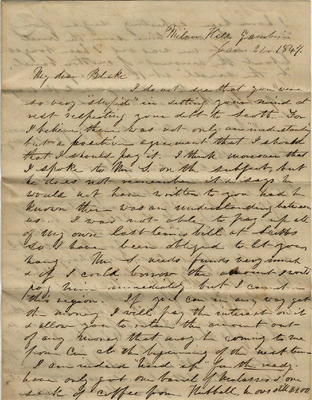 Milnor Hall Gambier
June 21st 1849.
My dear Blake
I do not see that you were
so very "stupid" in setting your mind at
rest respecting your debt to Scott. For
I believe there was not only an understanding
but a positive agreement that I should
that I should pay it. I think moreover that
I spoke to Mr S. on the subject, but
he does not remember it & says he
would not have written to you had he
known there was an understanding between
us. I was not able to pay up all
of my own last terms bill at Scotts
so I have been obliged to let yours
hang. Mr S. needs funds very much
& if I could borrow the amount I would
pay him immediately but I cannot in
this region. If you can in any way get
the money I will pay the interest on it
& allow you to retain the amount out
of any money that may be coming to me
from at the beginning of the next term
I am indeed "hard up" for the ready
have only got one barrel of Molasses & one
sack of coffee from Hubbell,